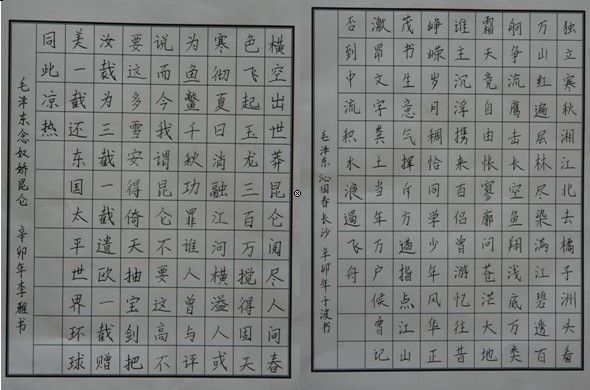 横空出世莽昆仑阅尽人间春
色飞起玉龙三百万搅得周天
寒彻夏日消融江河横溢人或
为鱼鳖千秋功罪谁人曾与评
说而今我谓昆仑不要这高不
要这多雪安得倚天抽宝剑把
汝裁为三截一截遗欧一截赠
美一截还东国太平世界环球
同此凉热
毛泽东念奴娇昆仑 辛卯年李雅书
独立寒秋湘江北去橘子洲头看
万山红遍层林尽染漫江碧透百
舸争流鹰击长空鱼翔浅底万类
霜天竞自由怅寥廓问苍茫大地
谁主沉浮携来百侣曾游忆往昔
峥嵘岁月稠恰同学少年风华正
茂书生意气挥斥方遒指点江山
激昂文字粪土当年万户侯曾记
否到中流积水浪遏飞舟
毛泽东 沁园春 长沙 辛卯年于波书